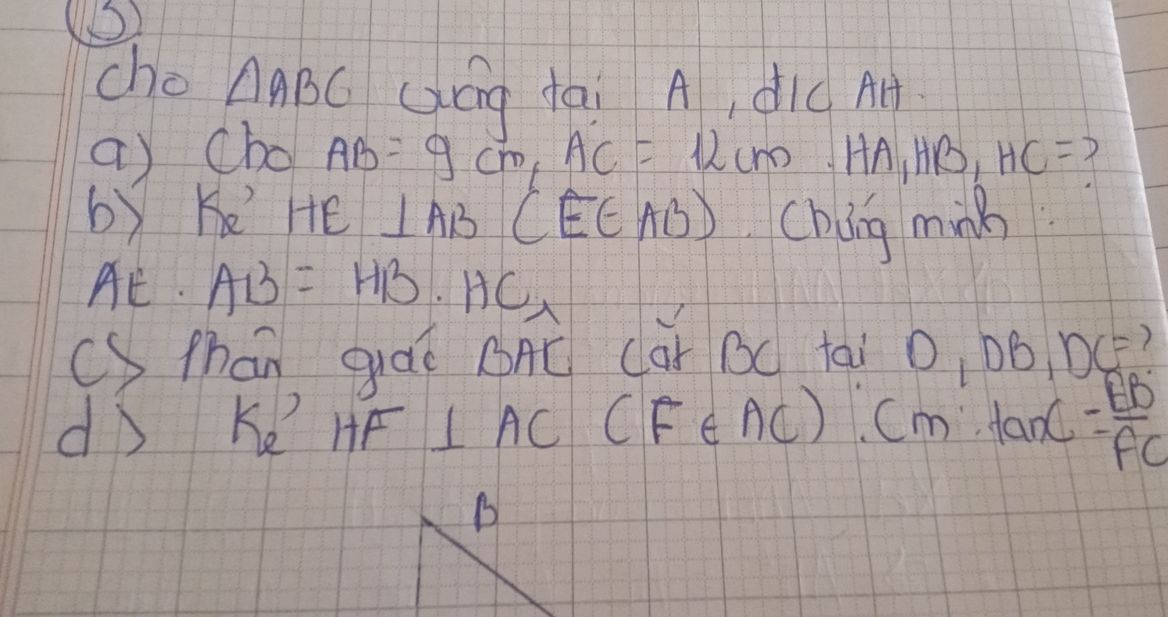 3
Cho ΔABC vuông tại A, đ/c AH.
a) Cho AB = 9 cm, AC = 12 cm. HA, HB, HC = ?
b) Kẻ HE ⊥ AB (E ∈ AB). Chứng minh :
AE . AB = HB . HC,
c) Phân giác BAC cắt BC tại D, DB, DC = ?
d) Kẻ HF ⊥ AC (F ∈ AC). Cm : tanC = EB/FC
B